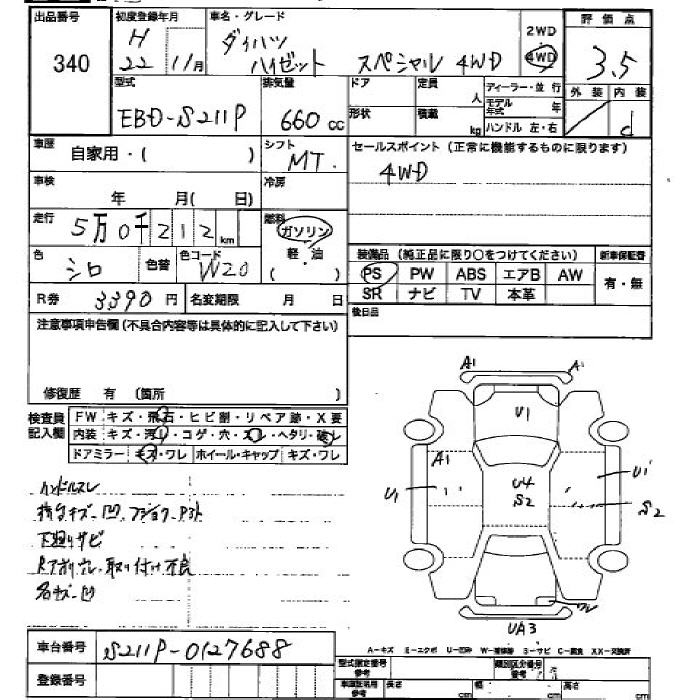 出品番号
340
初度登録年月
H
22 11月
車名・グレード
ダイハツ
ハイゼット スペシャル 4WD
2WD
4WD
評価点
3.5
外装 内装
d
型式
EBD-S211P
排気量
660 cc
ドア 定員
人
形状 積載
kg
ディーラー・並行
モデル年式 年
ハンドル 左・右
車歴
自家用・( )
シフト
MT.
セールスポイント (正常に機能するものに限ります)
4WD
車検
年 月( 日)
冷房
走行
5万0千212 km
燃料
ガソリン
軽・油
( )
色
シロ
色替
色コード
W20
装備品 (純正品に限り○をつけてください)
新車保証書
PS PW ABS エアB AW
SR ナビ TV 本革
有・無
R券 3390円 名変期限 月 日
後日品
注意事項申告欄(不具合内容等は具体的に記入して下さい)
修復歴 有 (箇所 )
検査員
記入欄
FW キズ・飛石・ヒビ割・リペア跡・X要
内装 キズ・汚れ・コゲ・穴・スレ・ヘタリ・破レ
ドアミラー キズ・ワレ ホイール・キャップ キズ・ワレ
ハンドルスレ
下廻りサビ
取り付け不良
A1 A1
U1
A1
U1
U4
S2
U1
S2
ワレ
UA3
A-キズ E-エクボ U-凹
車台番号 S211P-0127688
登録番号
型式指定番号
参考
類別区分番号
参考
長さ cm 幅 cm cm